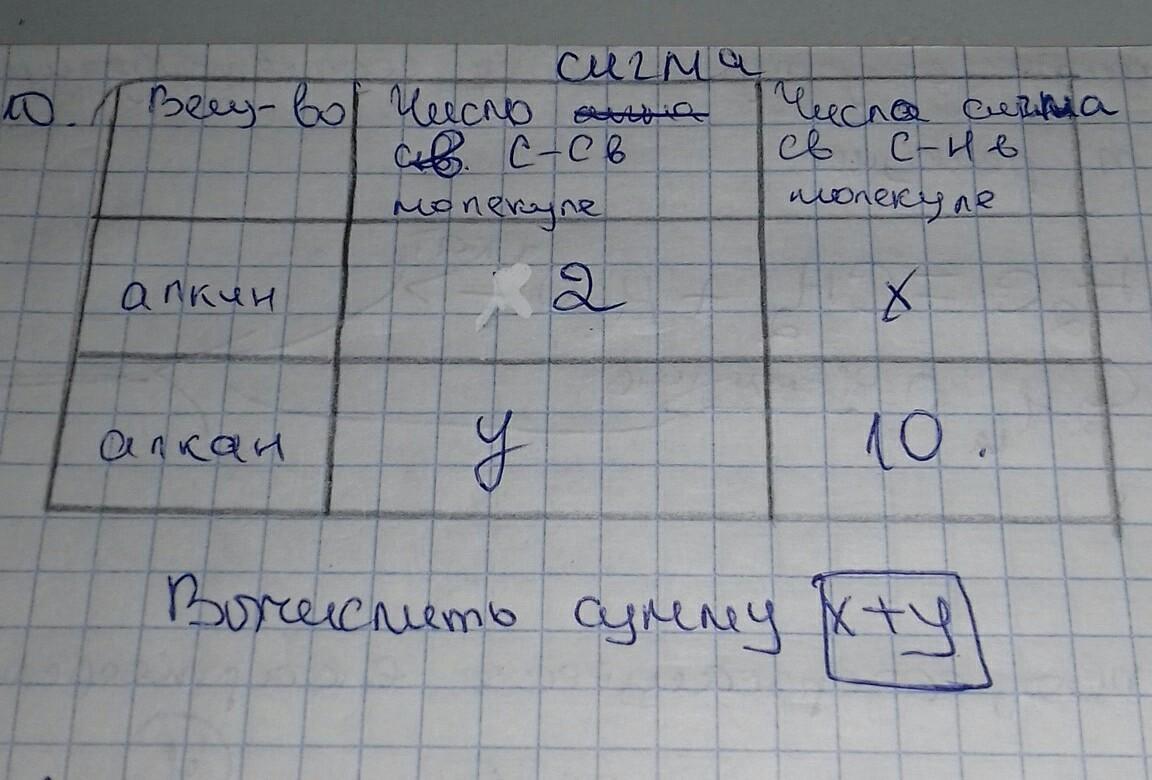 сигма
10. Вещ-во Число св. C-C в молекуле Число сигма св C-H в молекуле
алкин 2 x
алкан y 10.
Вычислить сумму x+y